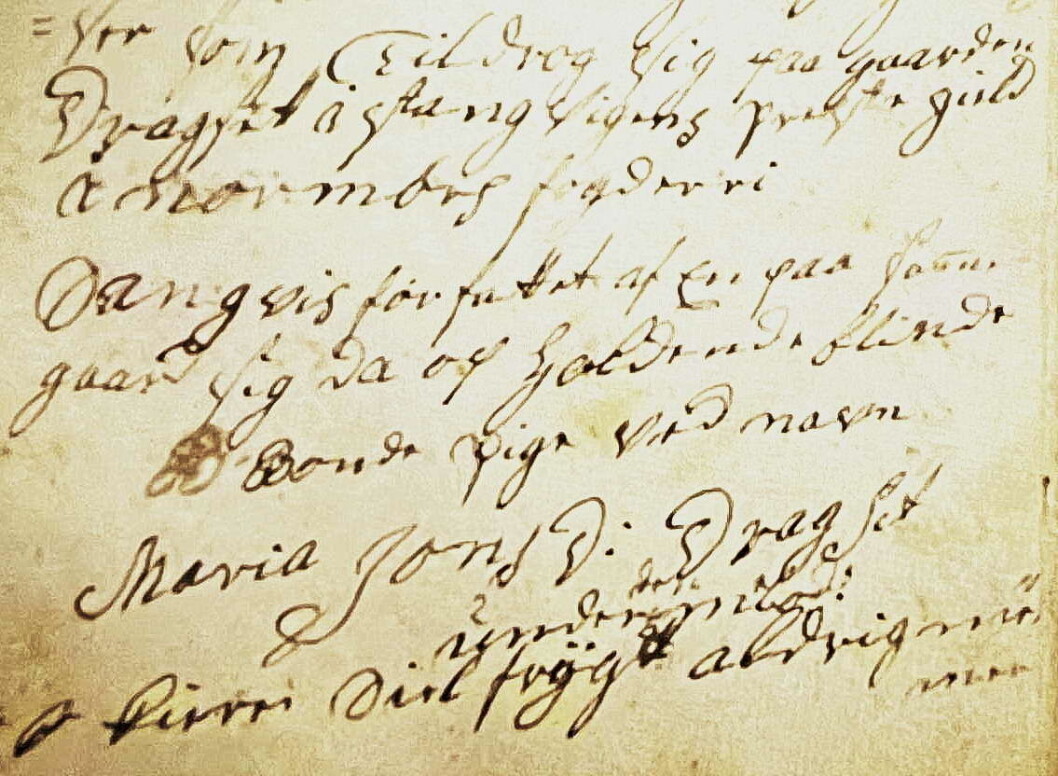 =ver som Tildrog sig paa gaarden
Dragset i Stangvigens Preste gield
i Normørs fogderri
Sangvis forfattet af En paa samme
gaard sig da op Holdende blinde
Bonde Pige ved navn
Maria Jons D: Dragset
under den melod:
O kiere Siel frygt aldrig mer